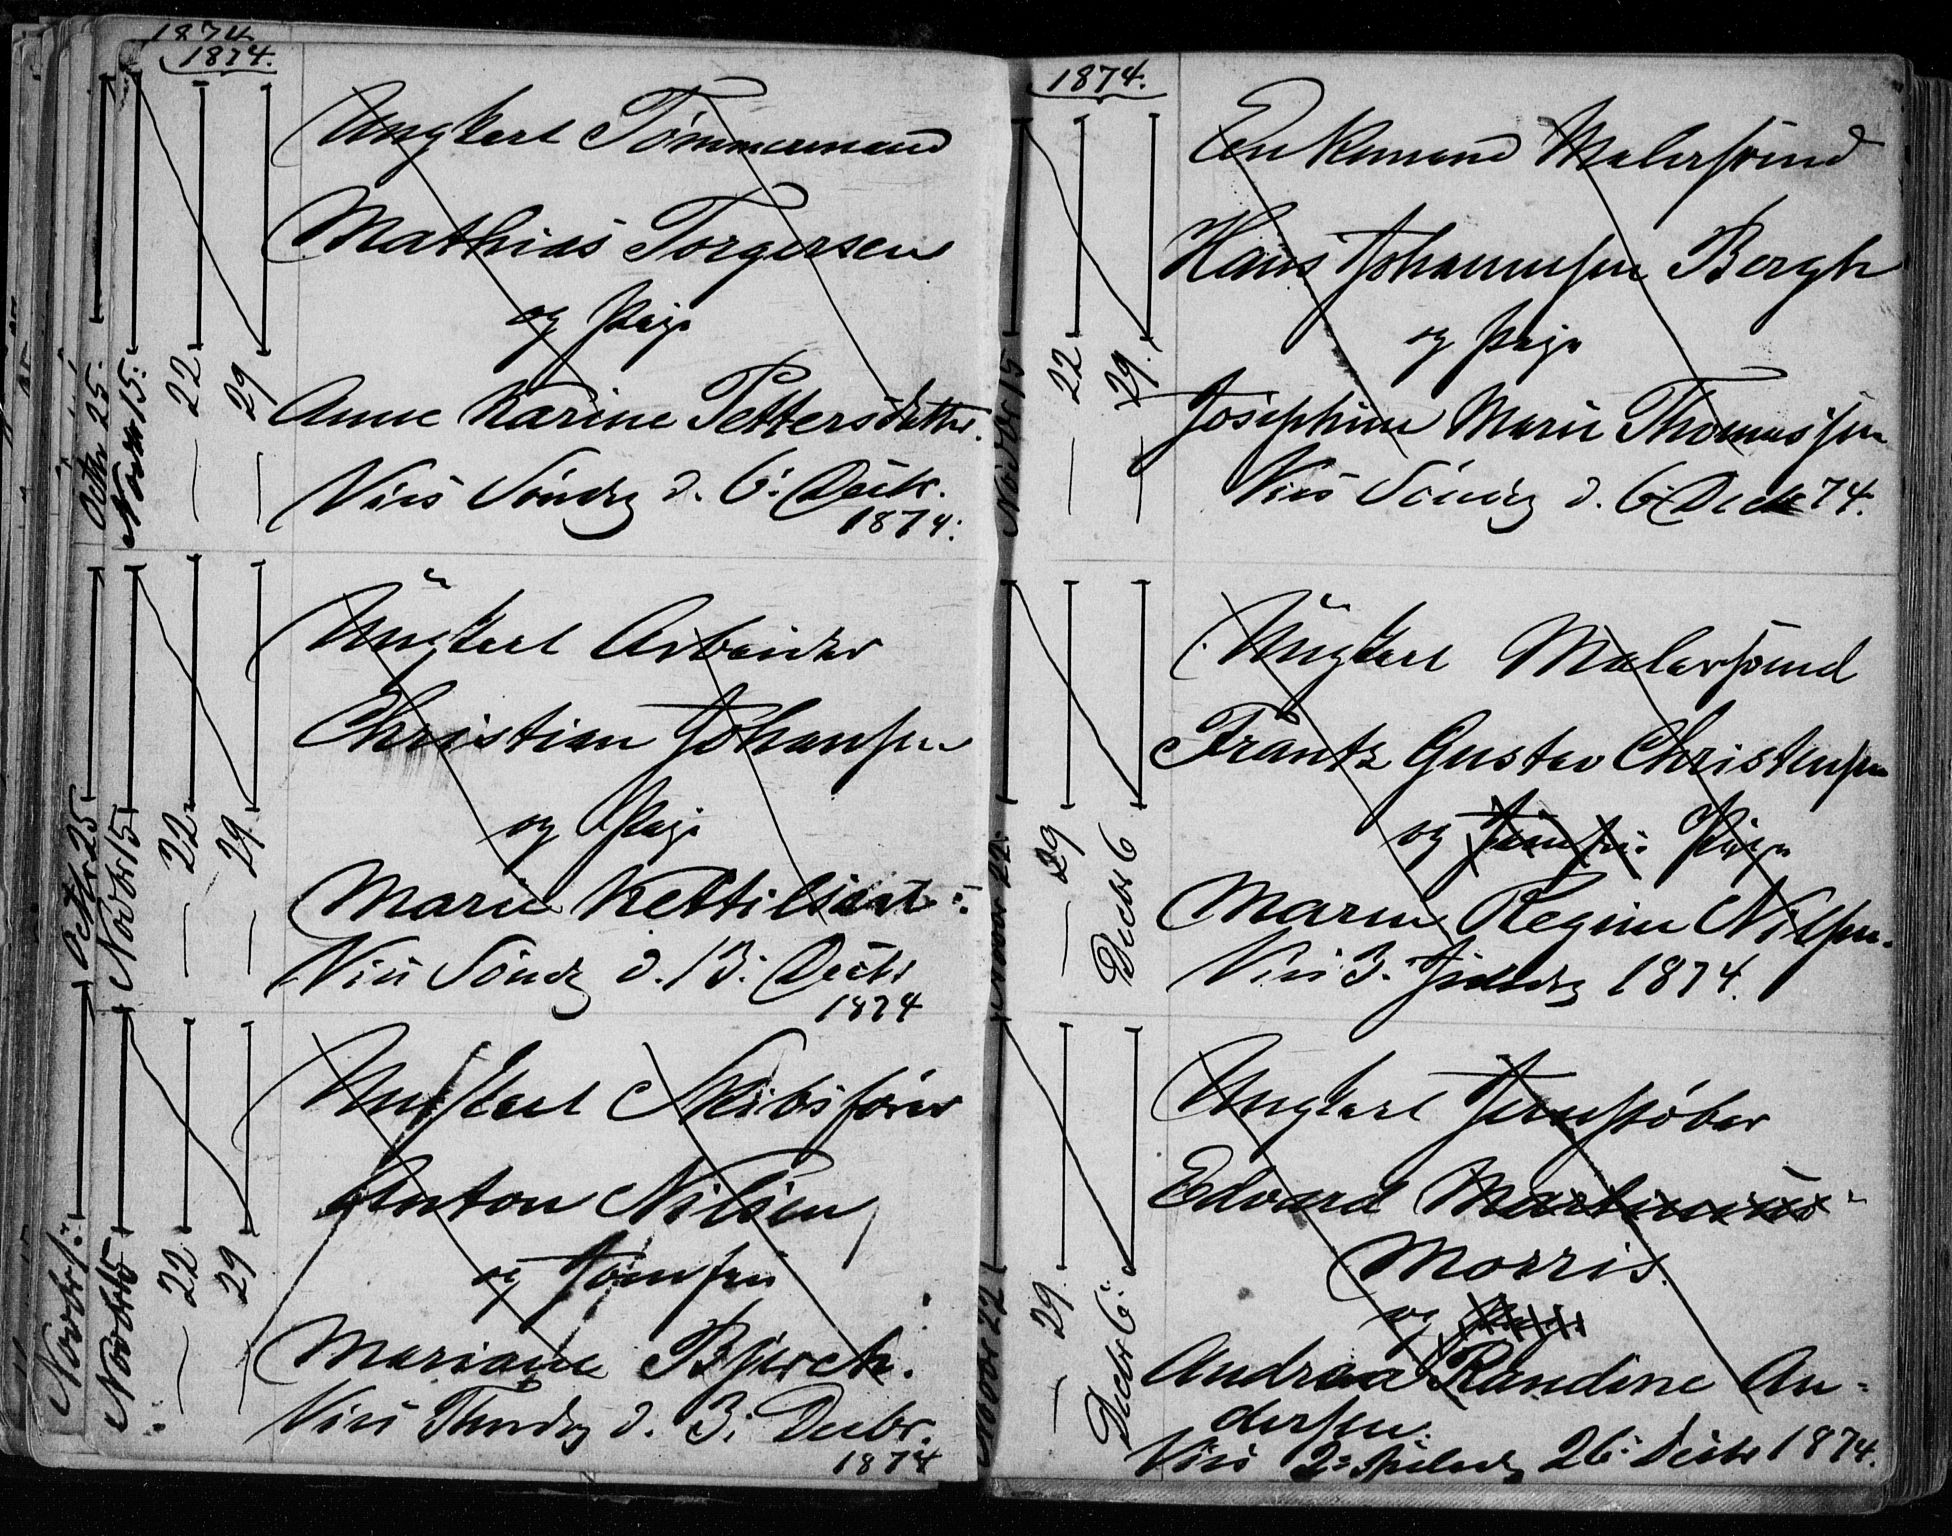 1874.
1874.
Octbr 25.
Novbr 15.
22
29
Ungkarl Tømmermand
Mathias Torgersen
og Pige
Anne Karine Pettersdatter.
Vies Søndag d. 6. Decbr.
1874.
Octbr 25
Novbr 15
22
29.
Ungkarl Arbeider
Christian Johansen
og Pige
Marie Kettilsdat.
Vies Søndag d. 13. Decbr
1874
Novbr
Novbr 15
22
29
Ungkarl Skibsfører
Anton Nilsen
og Jomfru
Mariane Bjurck.
Vies Thordag d. 3. Decbr.
1874
1874.
Novbr 15
22
29.
Enkemand Malersvend
Hans Johannesen Bergh
og Pige
Josephine Marie Thomassen
Vies Søndag d. 6. Decbr 74.
Novbr 22.
29
Decbr 6
Ungkarl Malersvend
Frantz Gustav Christensen
og Jomfru Pige
Maren Regine Nilsen.
Vies 3. Juledag 1874.
Novbr 22
29.
Decbr 6.
Ungkarl Jernstøber
Edvard Martinius
Morris.
og Pige
Andrea Randine An-
dersen.
Vies 2. Juledag 26. Decbr 1874.